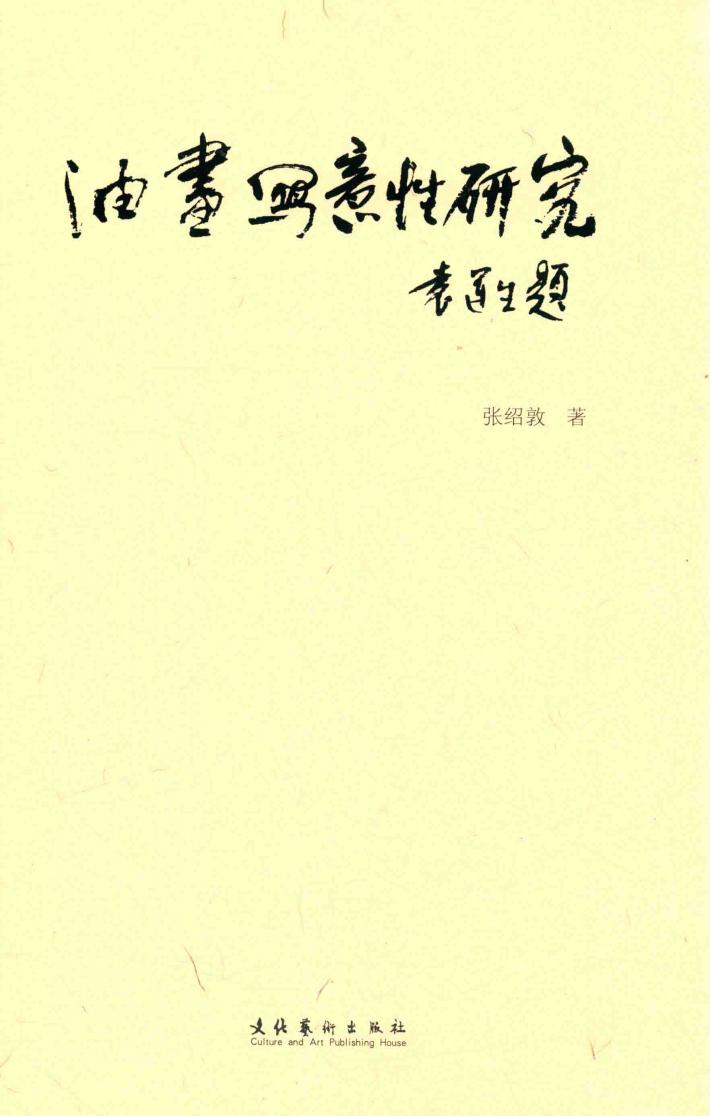 油畫寫意性研究
袁運生題
张绍敦 著
文化藝術出版社
Culture and Art Publishing House